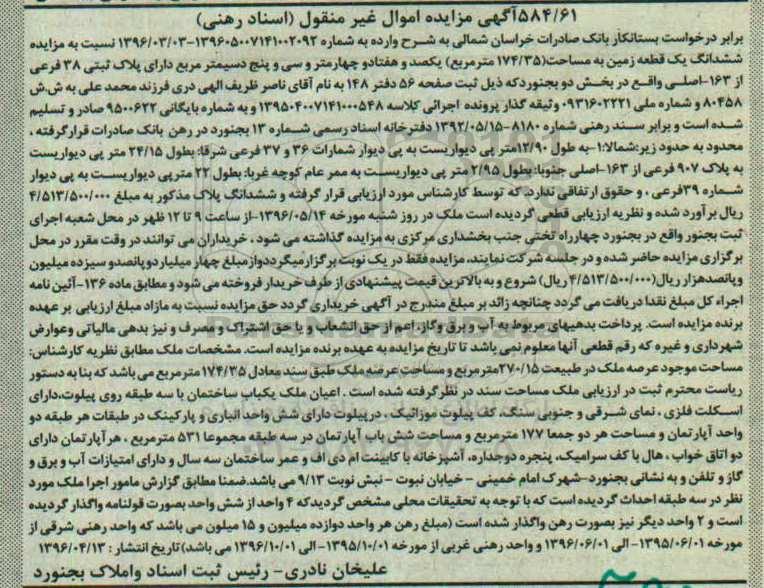 ۵۸۴/۶۱آگهی مزایده اموال غیر منقول (اسناد رهنی)
برابر درخواست بستانکار بانک صادرات خراسان شمالی به شرح وارده به شماره ۱۳۹۶۰۵۰۰۷۱۴۱۰۰۲۰۹۲-۱۳۹۶/۰۳/۰۳ نسبت به مزایده
ششدانگ یک قطعه زمین به مساحت(۱۷۴/۳۵ مترمربع) یکصد و هفتادو چهارمتر و سی و پنج دسیمتر مربع دارای پلاک ثبتی ۳۸ فرعی
از ۱۶۳-اصلی واقع در بخش دو بجنوردکه ذیل ثبت صفحه ۵۶ دفتر ۱۴۸ به نام آقای ناصر ظریف الهی دری فرزند محمد علی به ش.ش
۸۰۴۵۸ و شماره ملی ۰۹۳۱۶۰۲۲۲۱ وثیقه گذار پرونده اجرائی کلاسه ۱۳۹۵۰۴۰۰۷۱۴۱۰۰۰۵۴۸ و به شماره بایگانی ۹۵۰۰۶۲۲ صادر و تسلیم
شده است و برابر سند رهنی شماره ۸۱۸۰-۱۳۹۲/۰۵/۱۵ دفترخانه اسناد رسمی شماره ۱۳ بجنورد در رهن بانک صادرات قرارگرفته ،
محدود به حدود زیر:شمالا:۱-به طول ۱۲/۹۰متر پی دیواریست به پی دیوار شمارات ۳۶ و ۳۷ فرعی شرقا: بطول ۲۴/۱۵ متر پی دیواریست
به پلاک ۹۰۷ فرعی از ۱۶۳-اصلی جنوبا: بطول ۲/۹۵ متر پی دیواریست به ممر عام کوچه غربا: بطول ۲۲ مترپی دیواریست به پی دیوار
شماره ۳۹فرعی ، و حقوق ارتفاقی ندارد. که توسط کارشناس مورد ارزیابی قرار گرفته و ششدانگ پلاک مذکور به مبلغ ۴/۵۱۳/۵۰۰/۰۰۰
ریال برآورد شده و نظریه ارزیابی قطعی گردیده است ملک در روز شنبه مورخه ۱۳۹۶/۰۵/۱۴-از ساعت ۹ تا ۱۲ ظهر در محل شعبه اجرای
ثبت بجنور واقع در بجنورد چهارراه تختی جنب بخشداری مرکزی به مزایده گذاشته می شود ، خریداران می توانند در وقت مقرر در محل
برگزاری مزایده حاضر شده و در جلسه شرکت نمایند، مزایده فقط در یک نوبت برگزارمیگرددوازمبلغ چهار میلیاردوپانصدو سیزده میلیون
وپانصدهزارریال(۴/۵۱۳/۵۰۰/۰۰۰ ریال) شروع و به بالاترین قیمت پیشنهادی از طرف خریدار فروخته می شود و مطابق ماده ۱۳۶-آئین نامه
اجراء کل مبلغ نقدا دریافت می گردد چنانچه زائد بر مبلغ مندرج در آگهی خریداری گردد حق مزایده نسبت به مازاد مبلغ ارزیابی بر عهده
برنده مزایده است. پرداخت بدهیهای مربوط به آب و برق وگاز، اعم از حق انشعاب و یا حق اشتراک و مصرف و نیز بدهی مالیاتی وعوارض
شهرداری و غیره که رقم قطعی آنها معلوم نمی باشد تا تاریخ مزایده به عهده برنده مزایده است. مشخصات ملک مطابق نظریه کارشناس:
مساحت موجود عرصه ملک در طبیعت ۲۷۰/۱۵مترمربع و مساحت عرصه ملک طبق سند معادل ۱۷۴/۳۵ مترمربع می باشد که بنا به دستور
ریاست محترم ثبت در ارزیابی ملک مساحت سند در نظرگرفته شده است . اعیان ملک یکباب ساختمان با سه طبقه روی پیلوت،دارای
اسکلت فلزی ، نمای شرقی و جنوبی سنگ، کف پیلوت موزائیک ، درپیلوت دارای شش واحد انباری و پارکینک در طبقات هر طبقه دو
واحد آپارتمان و مساحت هر دو جمعا ۱۷۷ مترمربع و مساحت شش باب آپارتمان در سه طبقه مجموعا ۵۳۱ مترمربع ، هرآپارتمان دارای
دو اتاق خواب ، هال با کف سرامیک، پنجره دوجداره، آشپزخانه با کابینت ام دی اف و عمر ساختمان سه سال و دارای امتیازات آب و برق و
گاز و تلفن و به نشانی بجنورد-شهرک امام خمینی - خیابان نبوت - نبش نوبت ۹/۱۳ می باشد.ضمنا مطابق گزارش مامور اجرا ملک مورد
نظر در سه طبقه احداث گردیده است که با توجه به تحقیقات محلی مشخص گردیدکه ۴ واحد از شش واحد بصورت قولنامه واگذار گردیده
است و ۲ واحد دیگر نیز بصورت رهن واگذار شده است (مبلغ رهن هر واحد دوازده میلیون و ۱۵ میلون می باشد که واحد رهنی شرقی از
مورخه ۱۳۹۵/۰۶/۰۱- الی ۱۳۹۶/۰۶/۰۱ و واحد رهنی غربی از مورخه ۱۳۹۵/۱۰/۰۱- الی ۱۳۹۶/۱۰/۰۱ می باشد)تاریخ انتشار : ۱۳۹۶/۰۴/۱۳
علیخان نادری- رئیس ثبت اسناد واملاک بجنورد